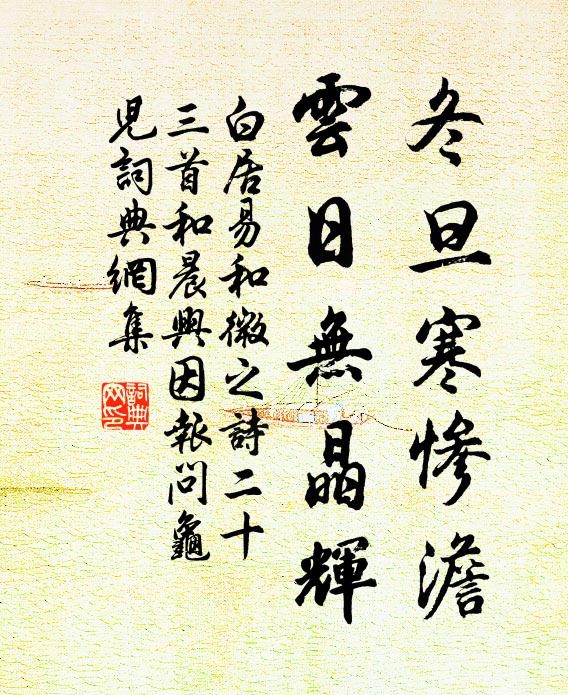 冬旦寒慘澹
雲日無晶輝
白居易和微之詩二十
三首和晨興因報問龜
兒詞典網集
詞典
网印